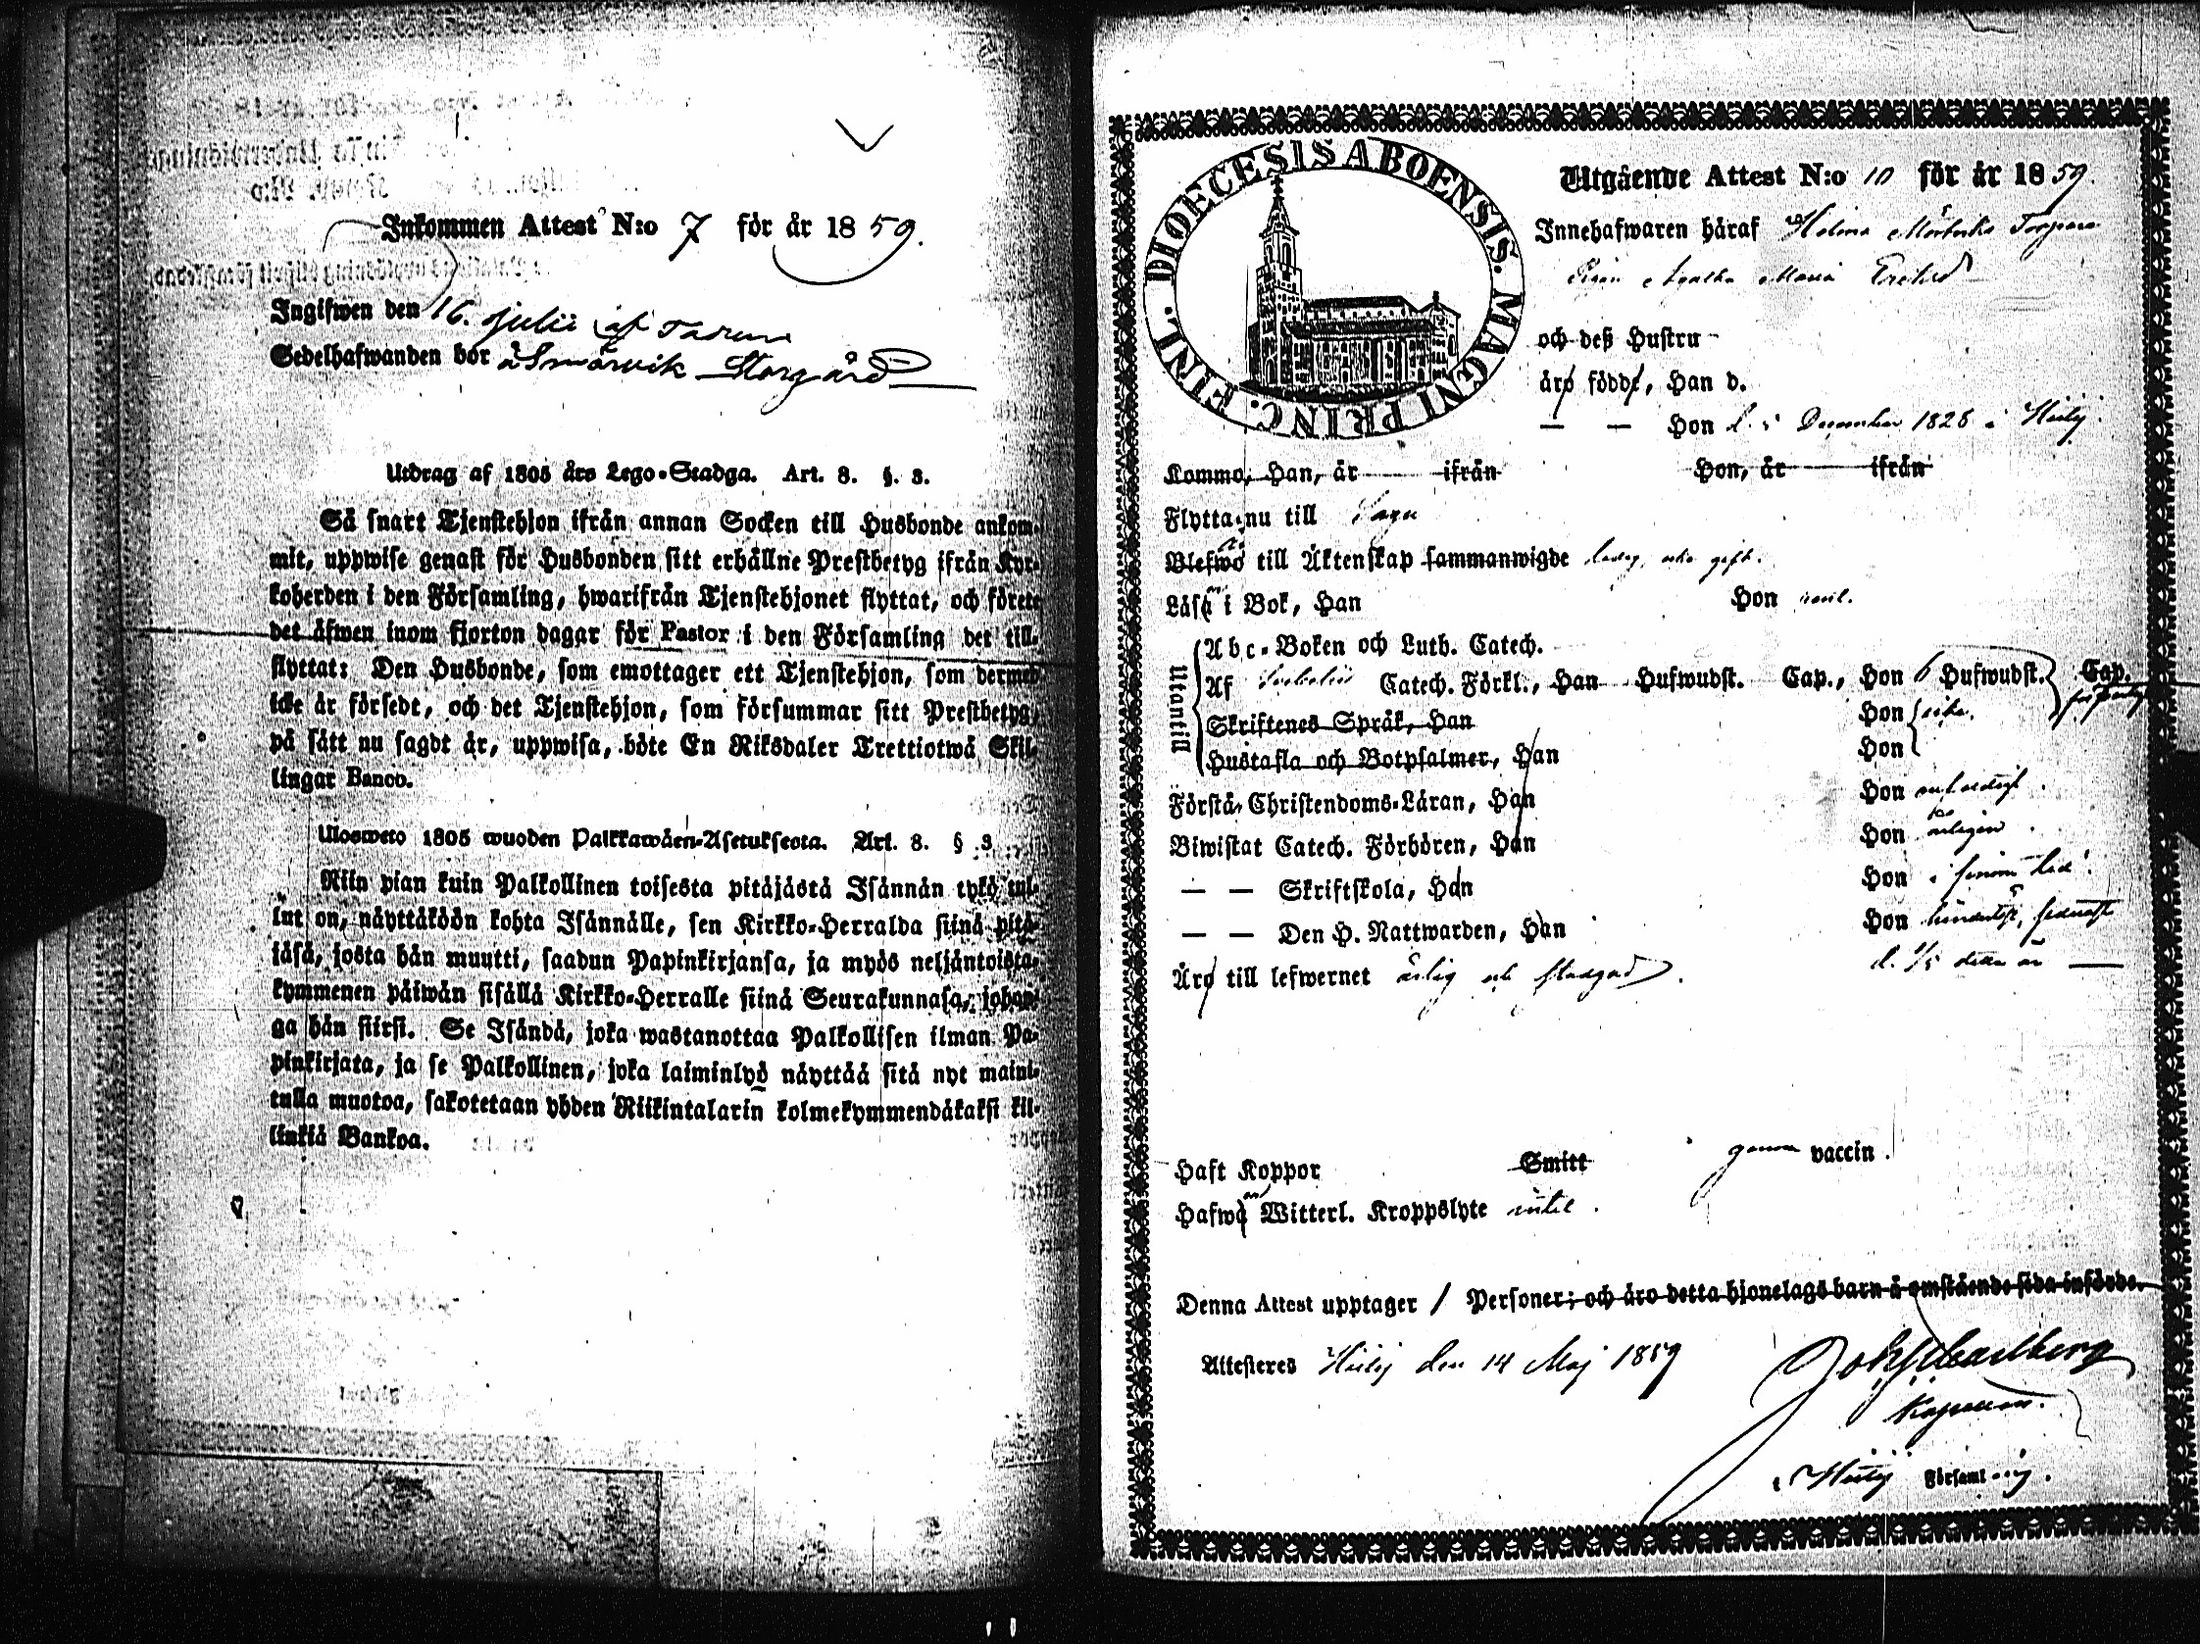 Inkommen Attest N:o 7 för år 1859.
Ingifwen den 16. Julii af
Sedelhafwanden bor å Smörvik Storgård
Utdrag af 1805 års Lego-Stadga. Art. 8. §. 3.
Så snart Tjenstehjon ifrån annan Socken till Husbonde ankom-
mit, uppwise genast för Husbonden sitt erhållne Prestbetyg ifrån Kyr-
koherden i den Församling, hwarifrån Tjenstehjonet flyttat, och förete
det äfwen inom fjorton dagar för Pastor i den Församling det till-
flyttat: Den Husbonde, som emottager ett Tjenstehjon, som dermed
icke är försedt, och det Tjenstehjon, som försummar sitt Prestbetyg,
på sätt nu sagdt är, uppwisa, böte En Riksdaler Trettiotwå Skil-
lingar Banco.
Ulosweto 1805 wuoden Palkkawäen-Asetuksesta. Art. 8. § 3.
Niin pian kuin Palkollinen toisesta pitäjästä Isännän tykö tul-
lut on, näyttäköön kohta Isännälle, sen Kirkko-Herralda siinä pitä-
jäsä, josta hän muutti, saadun Papinkirjansa, ja myös neljäntoista-
kymmenen päiwän sisällä Kirkko-Herralle siinä Seurakunnasa, johon-
ga hän siirsi. Se Isändä, joka wastanottaa Palkollisen ilman Pa-
pinkirjata, ja se Palkollinen, joka laiminlyö näyttää sitä nyt maini-
tulla muotoa, sakotetaan yhden Riikintalarin kolmekymmendäkaksi kil-
linkiä Bankoa.
DIOECESIS ABOENSIS. MAGNI PRINC. FINL.
Utgående Attest N:o 10 för år 1859.
Innehafwaren häraf
Agatha Maria
och deß Hustru
äro födde, Han d.
— — Hon d. 5 December 1828 i Hitis
Komma, Han, år ifrån Hon, år ifrån
Flytta nu till Sagu
Blefwo till Äktenskap sammanwigde ledig, icke gift.
Läsa i Bok, Han Hon
Utantill
Abc-Boken och Luth. Catech.
Af Catech. Förkl., Han Hufwudst. Cap., Hon 6 Hufwudst. Cap.
Skriftenes Språk, Han Hon
Hustafla och Botpsalmer, Han Hon
Förstå Christendoms-Läran, Han Hon
Biwistat Catech. Förhören, Han Hon
— — Skriftskola, Han Hon i sinom tid.
— — Den H. Nattwarden, Han Hon senast
Äro till lefwernet ärlig och stadgad. d. 1/5 detta år
Haft Koppor Smitt genom vaccin.
Hafwa Witterl. Kroppslyte intet.
Denna Attest upptager 1 Personer; och äro detta hjonelags barn å omstående sida införde.
Attesteras Hitis den 14 Maj 1859
Kapellan
i Hitis Församling.